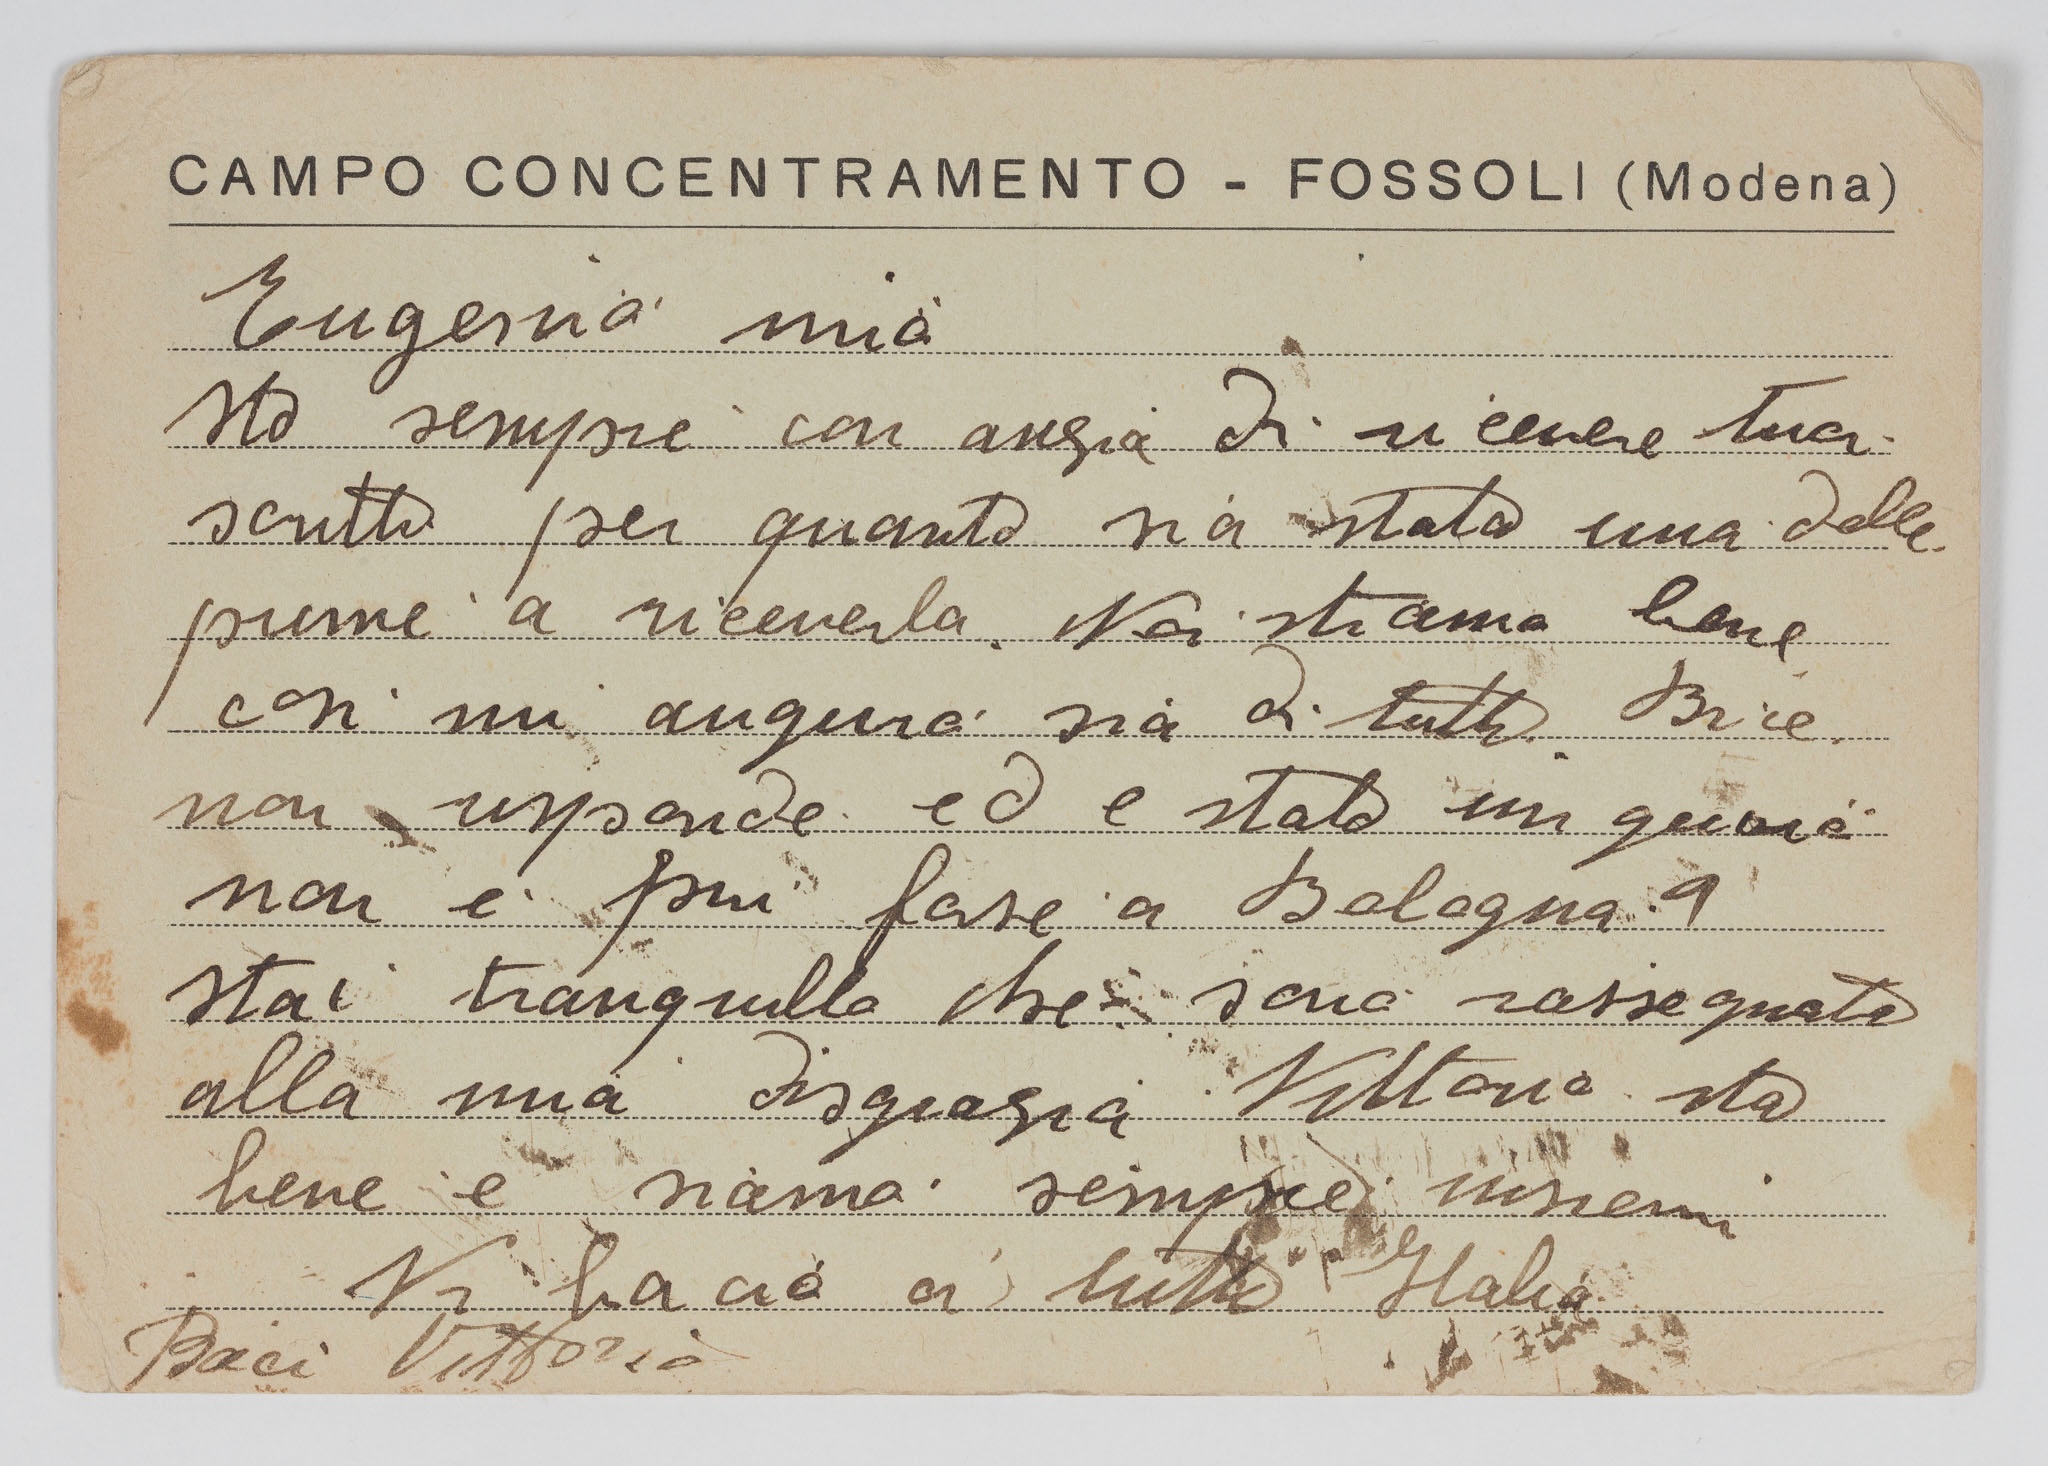 CAMPO CONCENTRAMENTO - FOSSOLI (Modena)
Eugenia mia
sto sempre con ansia di ricevere tuo
scritto per quanto sia stata una delle
prime a riceverla. Noi stiamo bene
cosi mi auguro sia di tutti.
non risponde ed e stato in
non e piu forse a Bologna?
stai tranquilla che sono rassegnata
alla mia disgrazia Vittorio sta
bene e siamo sempre insiemi
Vi bacio a tutti Italia
Baci Vittorio